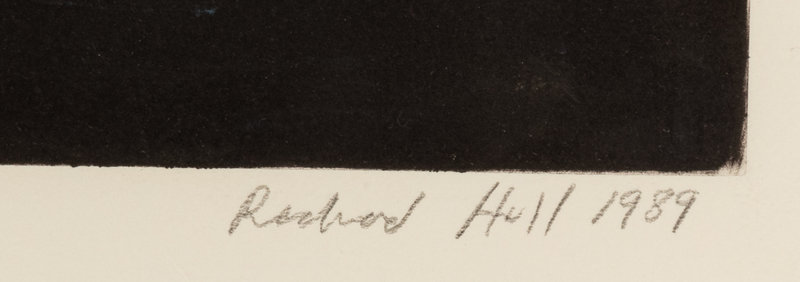 Richard Hull 1989